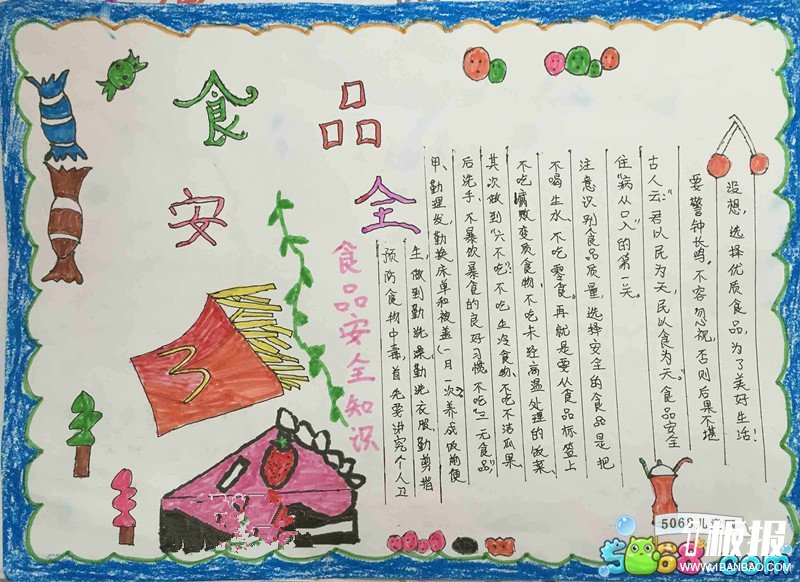 食品
安全
食品安全知识
预防食物中毒,首先要讲究个人卫
生,做到勤洗澡勤洗衣服,勤剪指
甲、勤理发勤换床单和被盖(一月一次)养成饭前便
后洗手、不暴饮暴食的良好习惯,不吃"三无食品"
其次做到"六不吃":不吃生冷食物、不吃不洁瓜果、
不吃腐败变质食物、不吃未经高温处理的饭菜、
不喝生水,不吃零食。再就是要从食品标签上
注意识别食品质量,选择安全的食品是把
住"病从口入"的第一关。
古人云:"君以民为天,民以食为天。"食品安全
要警钟长鸣。不容忽视,否则后果不堪
设想,选择优质食品,为了美好生活!
5068儿
板报
WWW.1BANBAO.COM